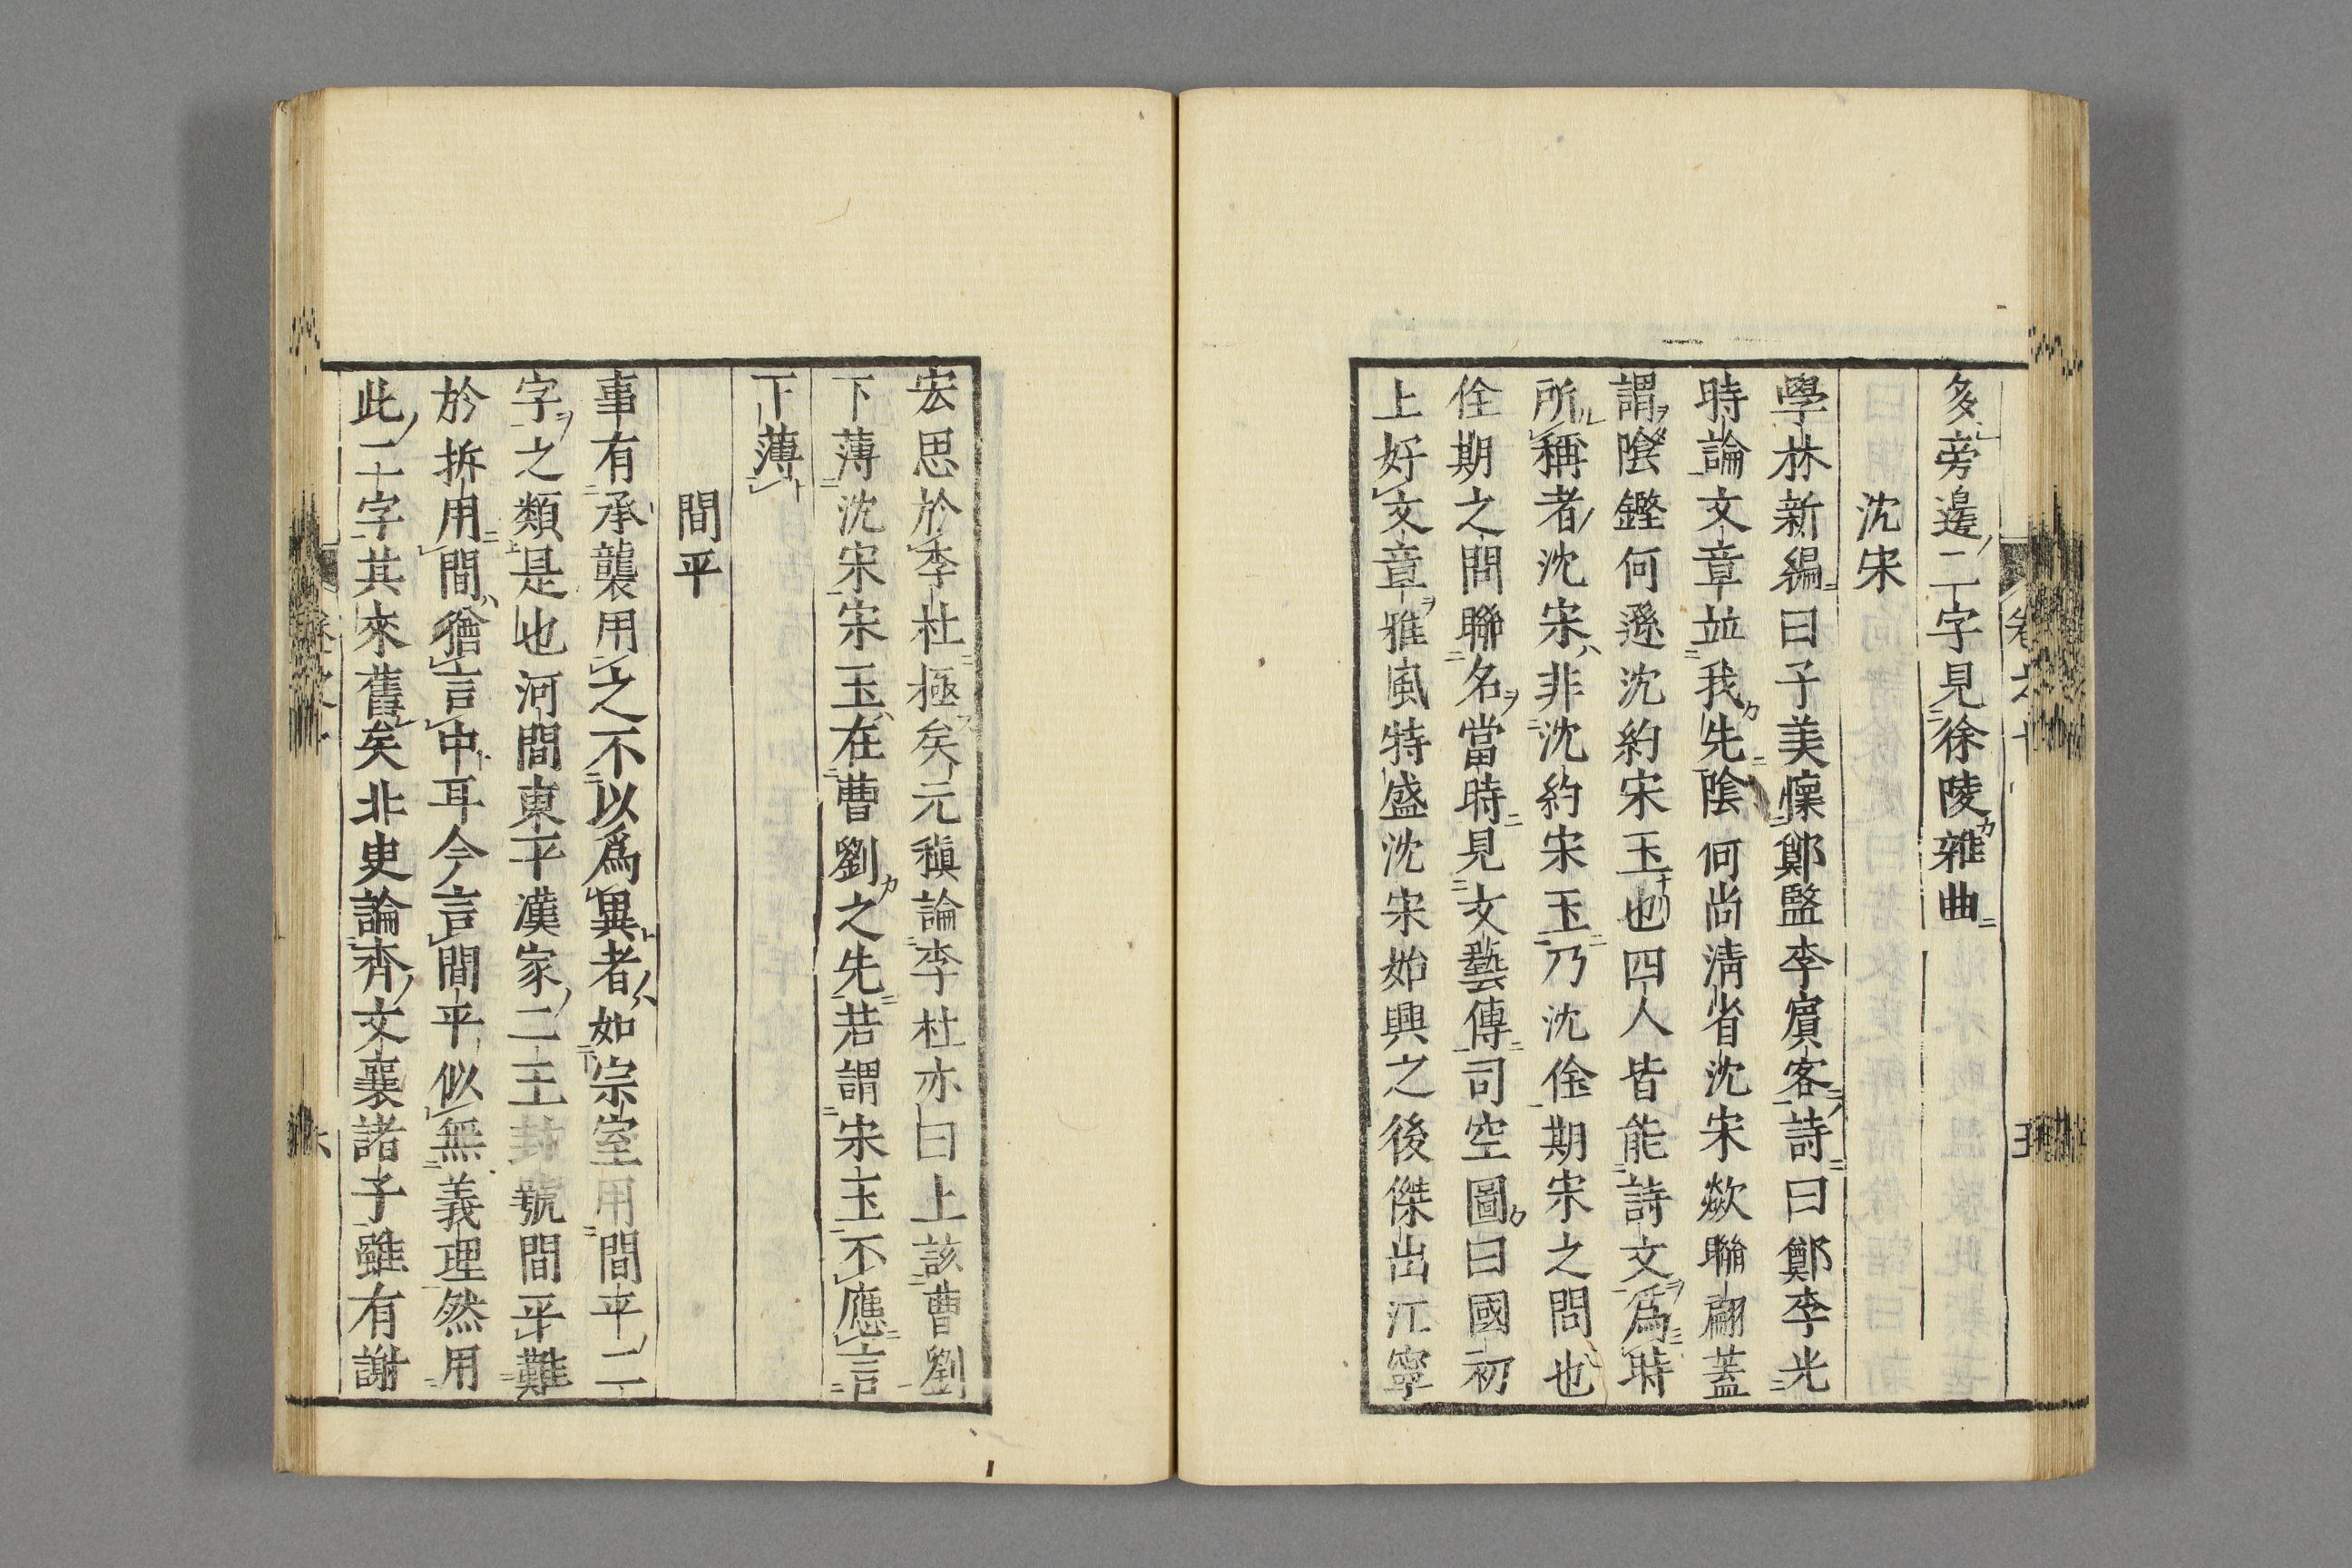 多旁邉二字見徐陵雜曲
沈宋
學林新編曰子美懍鄭監李賔客詩曰鄭李光
時論文章並我先陰何尚淸省沈宋歘聯翩蓋
謂陰鏗何遜沈約宋玉也四人皆能詩文爲時
所稱者沈宋非沈約宋玉乃沈佺期宋之問也
佺期之問聯名當時見文藝傳司空圖曰國初
上好文章雅風特盛沈宋始興之後傑出江寧
宏思於李杜極矣元稹論李杜亦曰上該曹劉
下薄沈宋宋玉在曹劉之先若謂宋玉不應言
下薄
間平
事有承襲用之不以爲異者如宗室用間平二
字之類是也河間東平漢家二王封號間平難
於拆用間獪言中耳今言間平似無義理然用
此二字其來舊矣非史論齊文襄諸子雖有謝